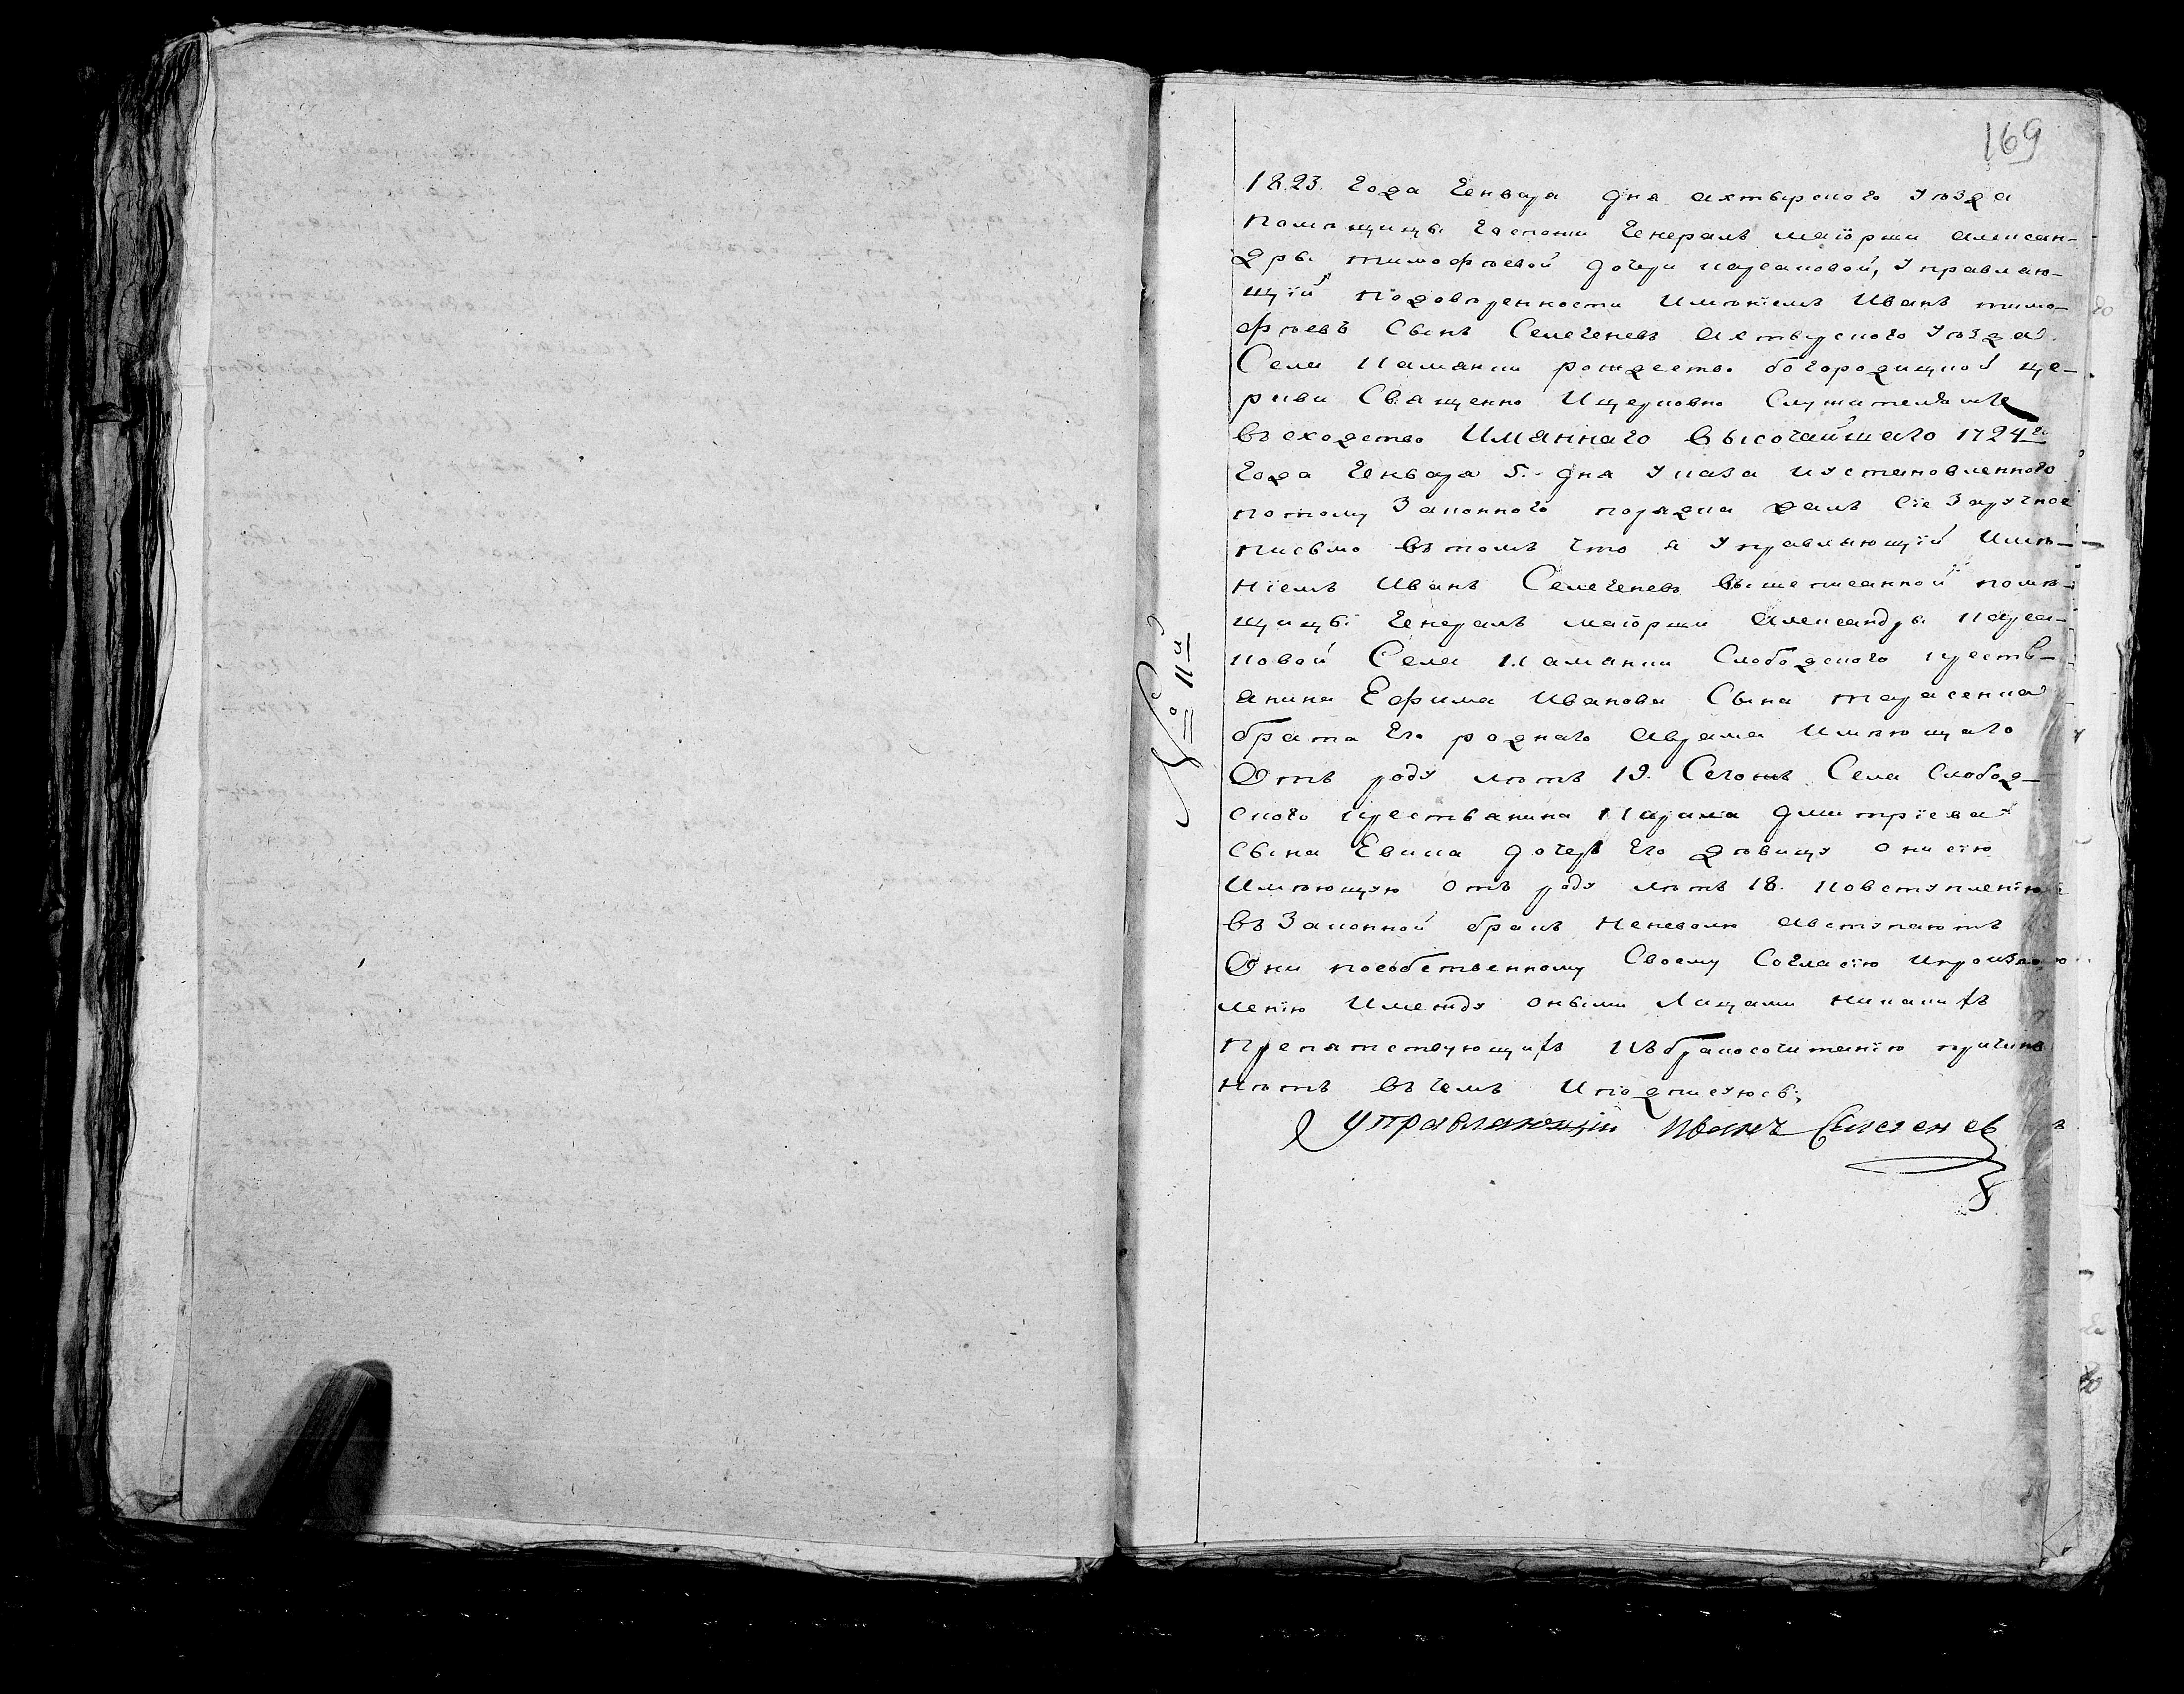 169
1823. Года Генваря дня ахтырского уѣзда
помѣщицы Госпожи Генералъ маіорши алексан-
дры тимофѣевой дочери карсаковой, управляю-
щій подовѣренности имѣніемъ иванъ тимо-
фѣевъ Сынъ Селегеневъ ахтырского уѣзда
Села Каманки рождество богородицкой це-
ркви Священно ицерковно Служителямъ
въсходство имяннаго высочайшаго 1724го
Года Генваря 5. дня указа иустановленного
потому Законного порядка далъ Сіе Заручное
письмо втомъ что я управляющій имѣ-
ніемъ иванъ Селегеневъ вышеписанной помѣ-
щицы Генералъ маіорши александры карса-
ковой Села Каманки Слободского кресть-
янина Ефима иванова Сына тарасенка
брата Его роднаго аврама имѣющаго
Отъ роду лѣтъ 19. Сегожъ Села Слобод-
ского крестьянина Карпа дмитріева
Сына Евика дочерь Его дѣвицу онисію
имѣющую отъ роду лѣтъ 18. ковступленію
въ Законной бракъ неневолю авступаютъ
Они пособственному Своему Согласію ипроизво-
ленію имежду оными Лицами никакихъ
препятствующихъ Къбракосочитанію причинъ
нѣтъ въ чемъ иподписуюсь;
управляющій иванъ Селегенев
№ 11й